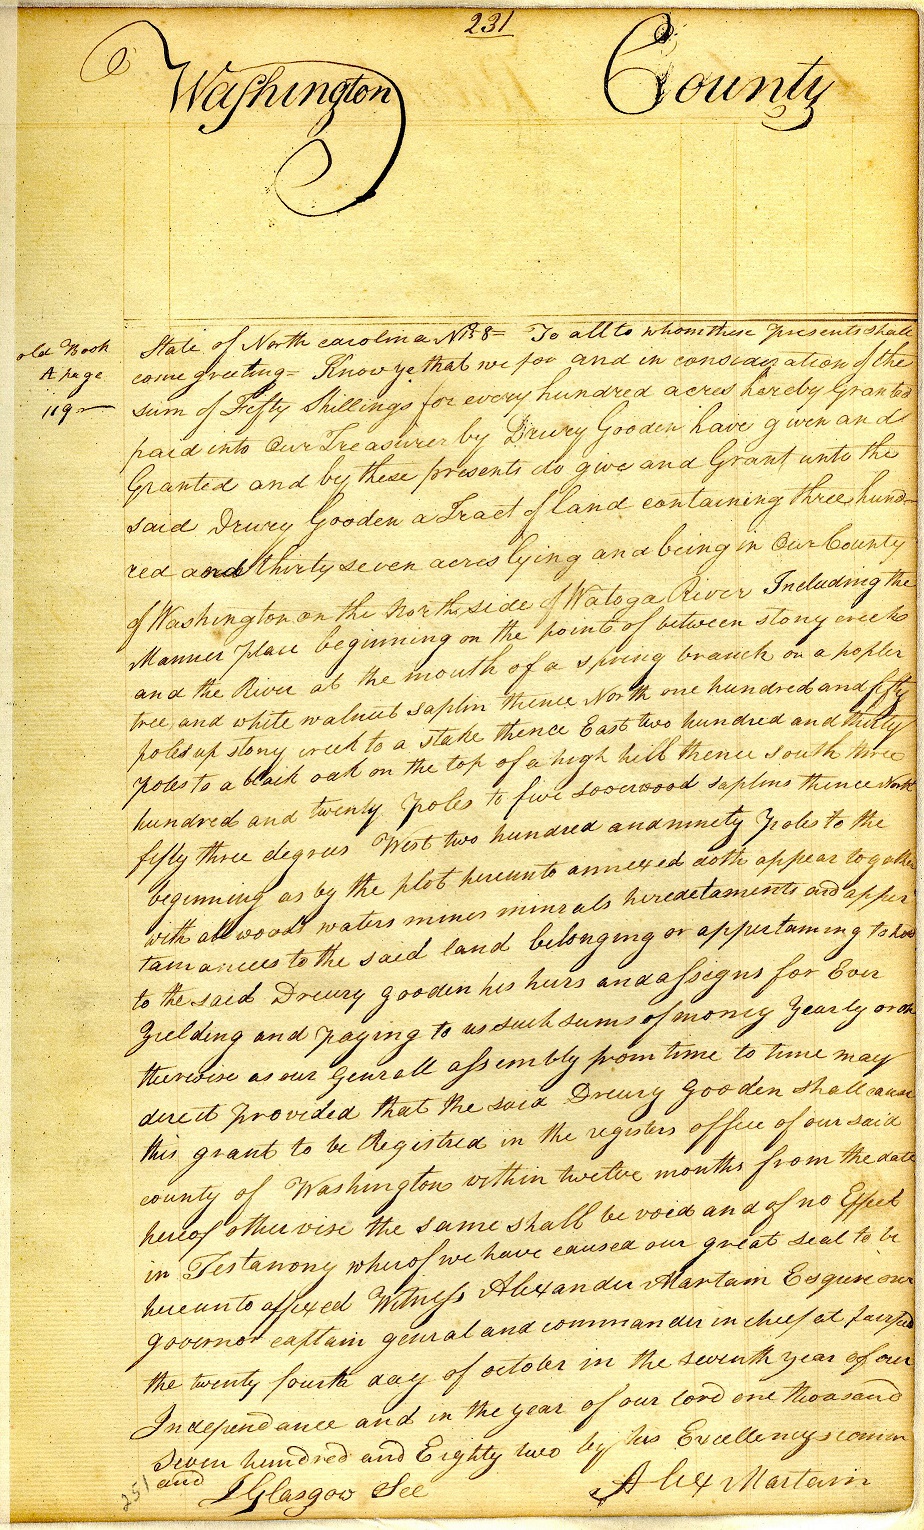 231
Washington County
old Book
A page
119
State of North carolina No 8= To all to whom these presents shall
come greeting= Know ye that we for and in consideration of the
sum of Fifty Shillings for every hundred acres hereby Granted
paid into Our Treasurer by Drury Gooden have given and
Granted and by these presents do give and Grant unto the
said Drury Gooden a Tract of land containing three hund-
red and thirty seven acres lying and being in Our County
of Washington on the North side of Watoga River Including the
Manner place beginning on the point of between stony creek
and the River at the mouth of a spring branch on a popler
tree and white walnut saplin thence North one hundred and fifty
poles up stony creek to a stake thence East two hundred and thirty
poles to a black oak on the top of a high hill thence south three
hundred and twenty poles to five sowerwood saplins thence North
fifty three degrees West two hundred and ninety poles to the
beginning as by the plot hereunto annexed doth appear together
with all woods waters mines minrals heredetaments and apper
tainances to the said land belonging or appertaining to hold
to the said Dreury Gooden his heirs and assigns for Ever
Yielding and paying to us such sums of money yearly or oth
therwise as our Genrall assembly from time to time may
direct provided that the said Dreury Gooden shall cause
this grant to be Registred in the registers office of our said
county of Washington within twelve months from the date
hereof otherwise the same shall be void and of no Effect
in Testamony wherof we have caused our great seal to be
hereunto affixed Witness Alexander Martain Esquire our
governor captain genral and commander in cheif at
the twenty fourth day of october in the seventh year of our
Independance and in the year of our lord one thousand
seven hundred and Eighty two by his Excellencys comm
and
J Glasgow Sec Alex Martain
251